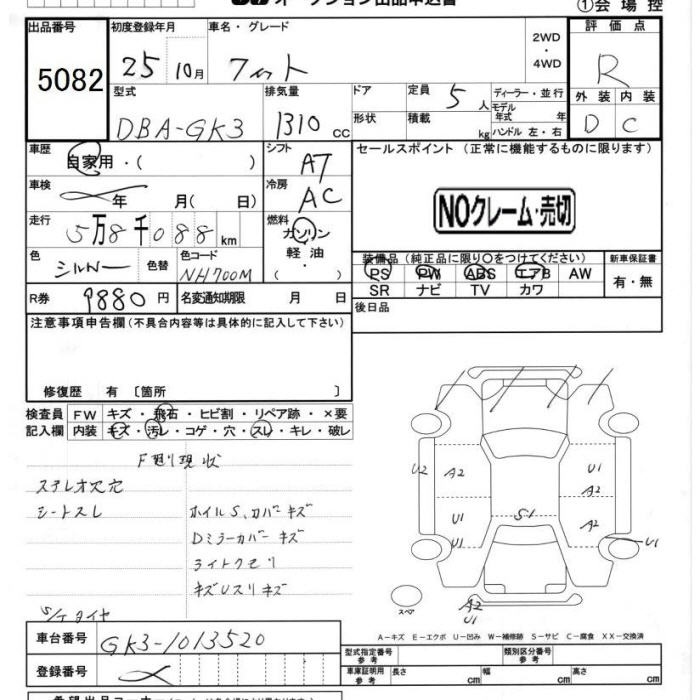 オークション出品申込書
①会場控
出品番号 初度登録年月 車名・グレード 2WD ・ 4WD 評価点
5082 25 10月 フィット R
型式 排気量 ドア 定員 5人 ディーラー・並行 外装 内装
DBA-GK3 1310 cc 形状 積載 kg モデル年式 年 ハンドル 左・右 D C
車歴 自家用・( ) シフト AT セールスポイント (正常に機能するものに限ります)
車検 年 月( 日) 冷房 AC NOクレーム・売切
走行 5万8千088km 燃料 ガソリン
色 シルバー 色替 色コード NH700M 軽油・( ) 装備品 (純正品に限り○をつけてください) 新車保証書
PS PW ABS エアB AW 有・無
R券 9880円 名変通知期限 月 日 SR ナビ TV カワ
注意事項申告欄(不具合内容等は具体的に記入して下さい) 後日品
修復歴 有 〔箇所 〕
検査員 FW キズ・飛石・ヒビ割・リペア跡・×要
記入欄 内装 キズ・汚レ・コゲ・穴・スレ・キレ・破レ
F廻り現状
ステレオ欠穴
シートスレ ホイルS、カバーキズ
Dミラーカバーキズ
ライトクモリ
キズUスリキズ
S/Tタイヤ
U2 A2 U1
A2
U1 S1 A2
U1 U1
スペ A2
U1
A-キズ E-エクボ U-凹み W-補修跡 S-サビ C-腐食 XX-交換済
車台番号 GK3-1013520
登録番号
型式指定番号 参考 類別区分番号 参考
車庫証明用 参考 長さ cm 幅 cm 高さ cm